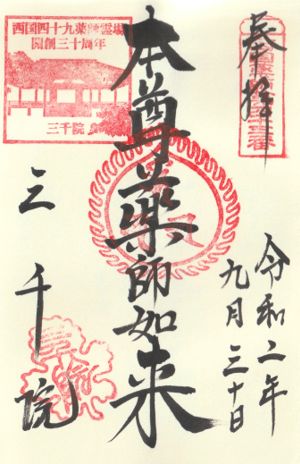 奉拝
令和二年
九月三十日
本尊薬師如来
三千院
西国四十九薬師霊場
開創三十周年
三千院